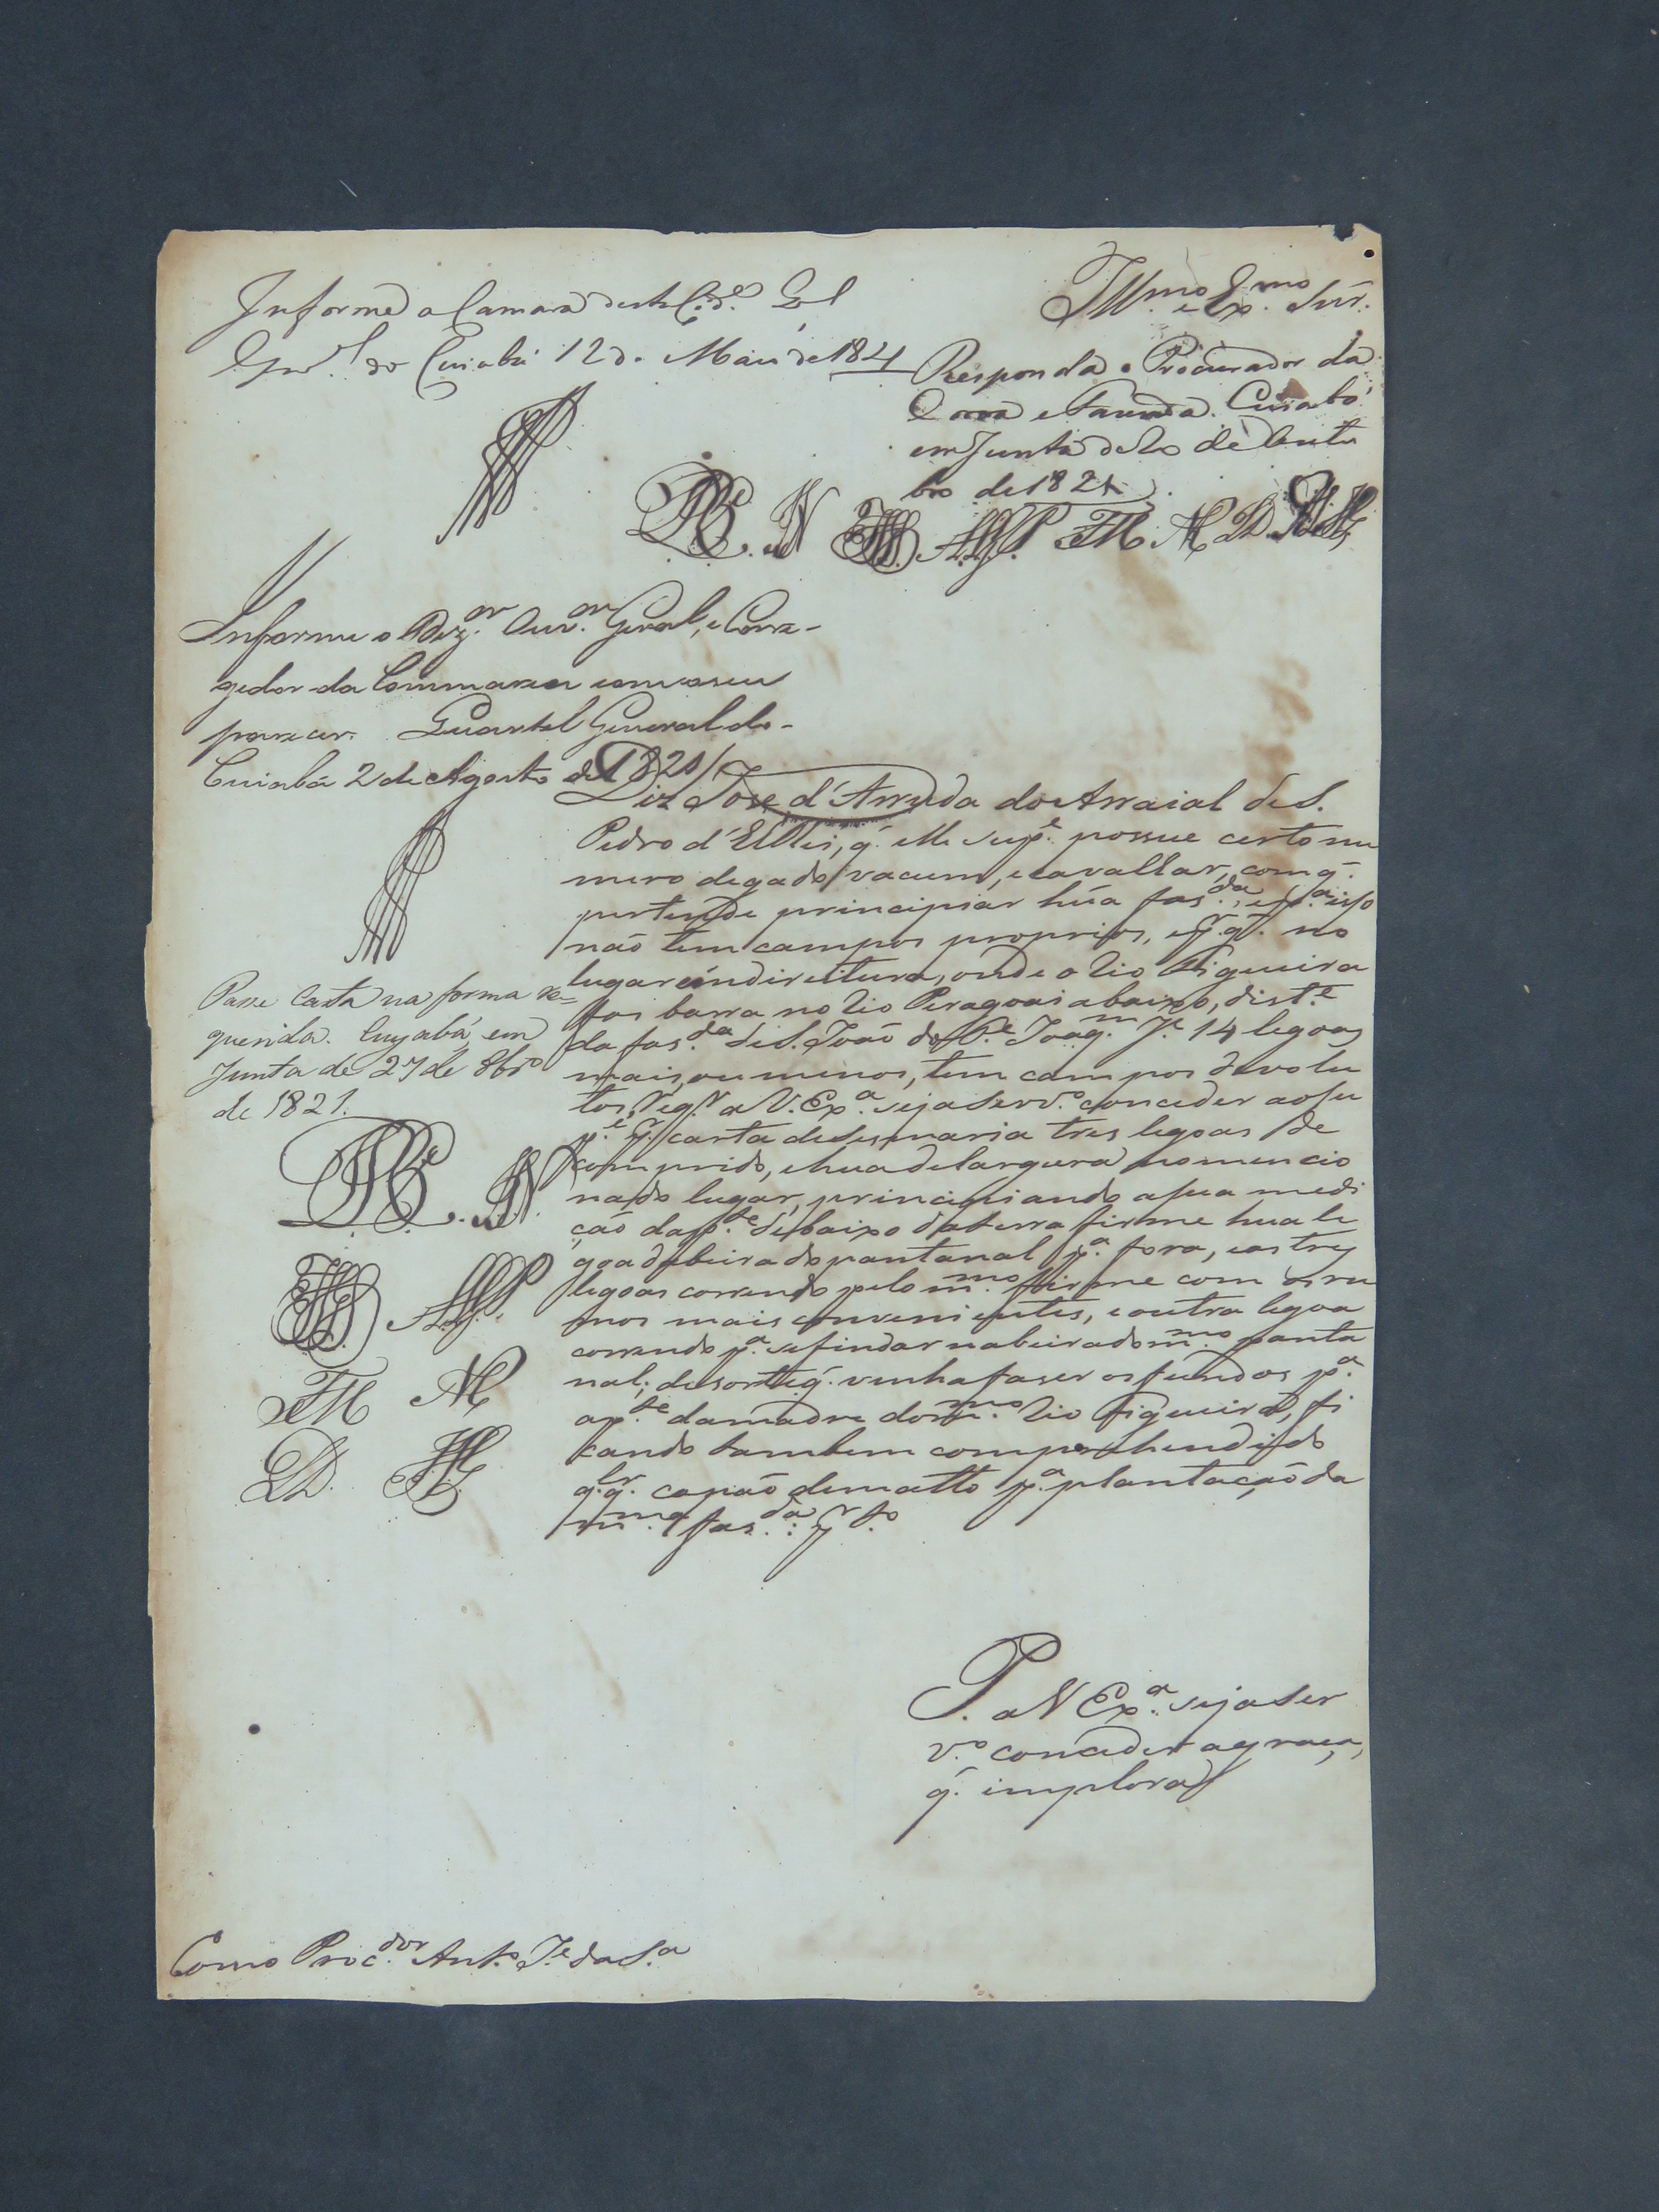 Illmo. e Exmo. Snr.
Informe a Camara desta Cide. Qel
Gnrl. do Cuiabá 12 de Maio de 1821
Responda o Procurador da
Coroa e Fazenda. Cuiabá
em Junta de 20 de Outu
bro de 1821
Informe o Dezor. Ouvor. Geral, e Corre-
gedor da Commarca com o seu
parecer. Quartel General do
Cuiabá 2 de Agosto de 1821
Diz Jose d'Arruda do Arraial de S.
Pedro d'ElRei, q. elle supe. possue certo nu
mero de gado vacum, e cavallar, com q.
pertende principiar húa fasda., e pa. isso
não tem campos proprios, e pr. q. no
lugar éindireitura, onde o Rio Figueira
fas barra no Rio Peragoai abaixo, diste.
da fasda. de S. João do Pe. Joaqm. Je. 14 legoas
mais, ou menos, tem campos devolu
tos, reqr. a V. Exa. seja servo. conceder ao su
pe. pr. carta de sesmaria tres legoas de
comprido, e hua de largura no mencio
nado lugar, principiando a sua medi
ção da pte. de baixo da terra firme hua le
goa da beira do pantanal pa. fora, e as tres
legoas correndo pelo mmo. firme com os ru
mos mais convenientes, e outra legoa
correndo pa. se findar na beira do mmo. panta
nal; de sorte q. venha faser os fundos pa.
a pte. da madre do mmo. Rio Figueira, fi
cando tambem comprehendido
qlr. q. capão de matto pa. plantação da
mma. fasda.: pr. to.
Passe Carta na forma re=
querida. Cuyabá em
Junta de 27 de 8bro
de 1821.
P. a V Exa. seja ser
vo. conceder a graça,
q. implora
Como Procdor. Anto. Je. da Sa.